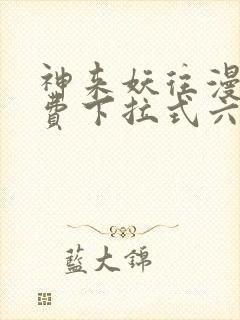 神来妖往漫
费下拉式六
藍大錦